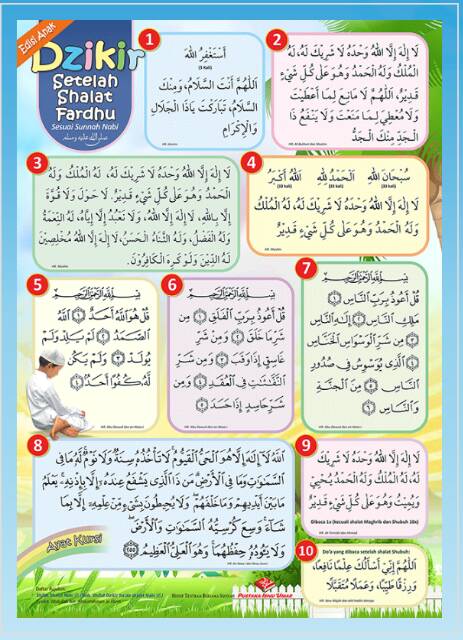 Edisi Anak
Dzikir
Setelah
Shalat
Fardhu
Sesuai Sunnah Nabi
صلى الله عليه وسلم
1
أَسْتَغْفِرُ اللهَ
(3 Kali)
اَللّٰهُمَّ أَنْتَ السَّلَامُ، وَمِنْكَ
السَّلَامُ، تَبَارَكْتَ يَاذَا الْجَلَالِ
وَالْإِكْرَامِ
HR. Muslim
2
لَا إِلٰهَ إِلَّا اللهُ وَحْدَهُ لَا شَرِيْكَ لَهُ، لَهُ
الْمُلْكُ وَلَهُ الْحَمْدُ وَهُوَ عَلَى كُلِّ شَيْءٍ
قَدِيْرٌ، اَللّٰهُمَّ لَا مَانِعَ لِمَا أَعْطَيْتَ
وَلَا مُعْطِيَ لِمَا مَنَعْتَ وَلَا يَنْفَعُ ذَا
الْجَدِّ مِنْكَ الْجَدُّ
HR. Al-Bukhari dan Muslim
3
لَا إِلٰهَ إِلَّا اللهُ وَحْدَهُ لَا شَرِيْكَ لَهُ، لَهُ الْمُلْكُ وَلَهُ
الْحَمْدُ وَهُوَ عَلَى كُلِّ شَيْءٍ قَدِيْرٌ. لَا حَوْلَ وَلَا قُوَّةَ
إِلَّا بِاللهِ، لَا إِلٰهَ إِلَّا اللهُ، وَلَا نَعْبُدُ إِلَّا إِيَّاهُ، لَهُ النِّعْمَةُ
وَلَهُ الْفَضْلُ، وَلَهُ الثَّنَاءُ الْحَسَنُ، لَا إِلٰهَ إِلَّا اللهُ مُخْلِصِيْنَ
لَهُ الدِّيْنَ وَلَوْ كَرِهَ الْكَافِرُوْنَ.
HR. Muslim
4
سُبْحَانَ اللهِ اَلْحَمْدُ لِلّٰهِ اَللهُ أَكْبَرُ
(33 kali) (33 kali) (33 kali)
لَا إِلٰهَ إِلَّا اللهُ وَحْدَهُ لَا شَرِيْكَ لَهُ، لَهُ الْمُلْكُ
وَلَهُ الْحَمْدُ وَهُوَ عَلَى كُلِّ شَيْءٍ قَدِيْرٌ
HR. Muslim
5
بِسْمِ اللهِ الرَّحْمٰنِ الرَّحِيْمِ
قُلْ هُوَ اللهُ أَحَدٌ ۝١ اللهُ
الصَّمَدُ ۝٢ لَمْ يَلِدْ وَلَمْ
يُولَدْ ۝٣ وَلَمْ يَكُنْ
لَهُ كُفُوًا أَحَدٌ ۝٤
6
بِسْمِ اللهِ الرَّحْمٰنِ الرَّحِيْمِ
قُلْ أَعُوذُ بِرَبِّ الْفَلَقِ ۝١ مِنْ
شَرِّ مَا خَلَقَ ۝٢ وَمِنْ شَرِّ
غَاسِقٍ إِذَا وَقَبَ ۝٣ وَمِنْ شَرِّ
النَّفّٰثٰتِ فِي الْعُقَدِ ۝٤ وَمِنْ
شَرِّ حَاسِدٍ إِذَا حَسَدَ ۝٥
7
بِسْمِ اللهِ الرَّحْمٰنِ الرَّحِيْمِ
قُلْ أَعُوذُ بِرَبِّ النَّاسِ ۝١
مَلِكِ النَّاسِ ۝٢ إِلٰهِ النَّاسِ
۝٣ مِنْ شَرِّ الْوَسْوَاسِ الْخَنَّاسِ
۝٤ الَّذِي يُوَسْوِسُ فِي صُدُورِ
النَّاسِ ۝٥ مِنَ الْجِنَّةِ
وَالنَّاسِ ۝٦
8
اللهُ لَا إِلٰهَ إِلَّا هُوَ الْحَيُّ الْقَيُّومُ لَا تَأْخُذُهُ سِنَةٌ وَلَا نَوْمٌ لَهُ مَا فِي
السَّمٰوٰتِ وَمَا فِي الْأَرْضِ مَنْ ذَا الَّذِي يَشْفَعُ عِنْدَهُ إِلَّا بِإِذْنِهِ يَعْلَمُ
مَا بَيْنَ أَيْدِيهِمْ وَمَا خَلْفَهُمْ وَلَا يُحِيطُونَ بِشَيْءٍ مِنْ عِلْمِهِ إِلَّا بِمَا
شَاءَ وَسِعَ كُرْسِيُّهُ السَّمٰوٰتِ وَالْأَرْضَ
وَلَا يَئُودُهُ حِفْظُهُمَا وَهُوَ الْعَلِيُّ الْعَظِيمُ ۝٢٥٥
Ayat Kursi
9
لَا إِلٰهَ إِلَّا اللهُ وَحْدَهُ لَا شَرِيْكَ
لَهُ، لَهُ الْمُلْكُ وَلَهُ الْحَمْدُ يُحْيِيْ
وَيُمِيْتُ وَهُوَ عَلَى كُلِّ شَيْءٍ قَدِيْرٌ
Dibaca 1x (kecuali shalat Maghrib dan Shubuh 10x)
10
Do'a yang dibaca setelah shalat Shubuh:
اَللّٰهُمَّ إِنِّيْ أَسْأَلُكَ عِلْمًا نَافِعًا،
وَرِزْقًا طَيِّبًا، وَعَمَلًا مُتَقَبَّلًا
Pustaka Ibnu 'Umar